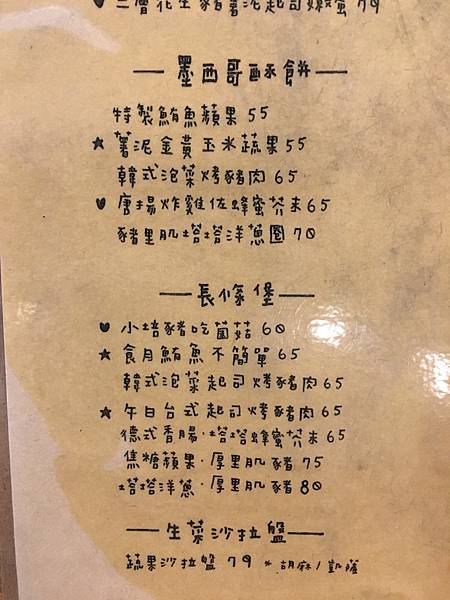 三層花生豬薯泥起司嫩蛋 79
墨西哥酥餅
特製鮪魚蘋果 55
★ 薯泥金黃玉米蔬果 55
韓式泡菜烤豬肉 65
唐揚炸雞佐蜂蜜芥末 65
豬里肌塔塔洋蔥圈 70
長條堡
小培豬吃菌菇 60
★ 食月鮪魚不簡單 65
韓式泡菜起司烤豬肉 65
★ 午日台式起司烤豬肉 65
德式香腸·塔塔蜂蜜芥末 65
焦糖蘋果·厚里肌豬 75
塔塔洋蔥·厚里肌豬 80
生菜沙拉盤
蔬果沙拉盤 79 * 胡麻/凱薩